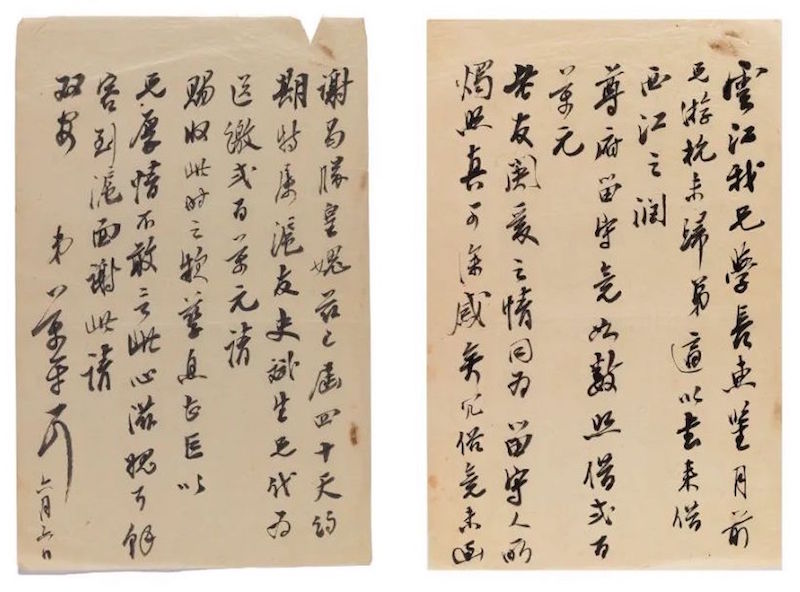 雲江我兄學長惠鑒月前
兄游杭未歸弟適以書來借
西江之潤
尊府留守竟如數照借弍百
萬元
老友關愛之情同为留守人所
燭照真可深感矣冗俗竟未函
謝曷勝皇媿茲已屆四十天約
期特屬滬友史生兄代为
送繳弍百萬元請
賜收此時之息以
兄厚情不敢言此心滋媿可
容到滬面謝此請
双安
弟
六月六日